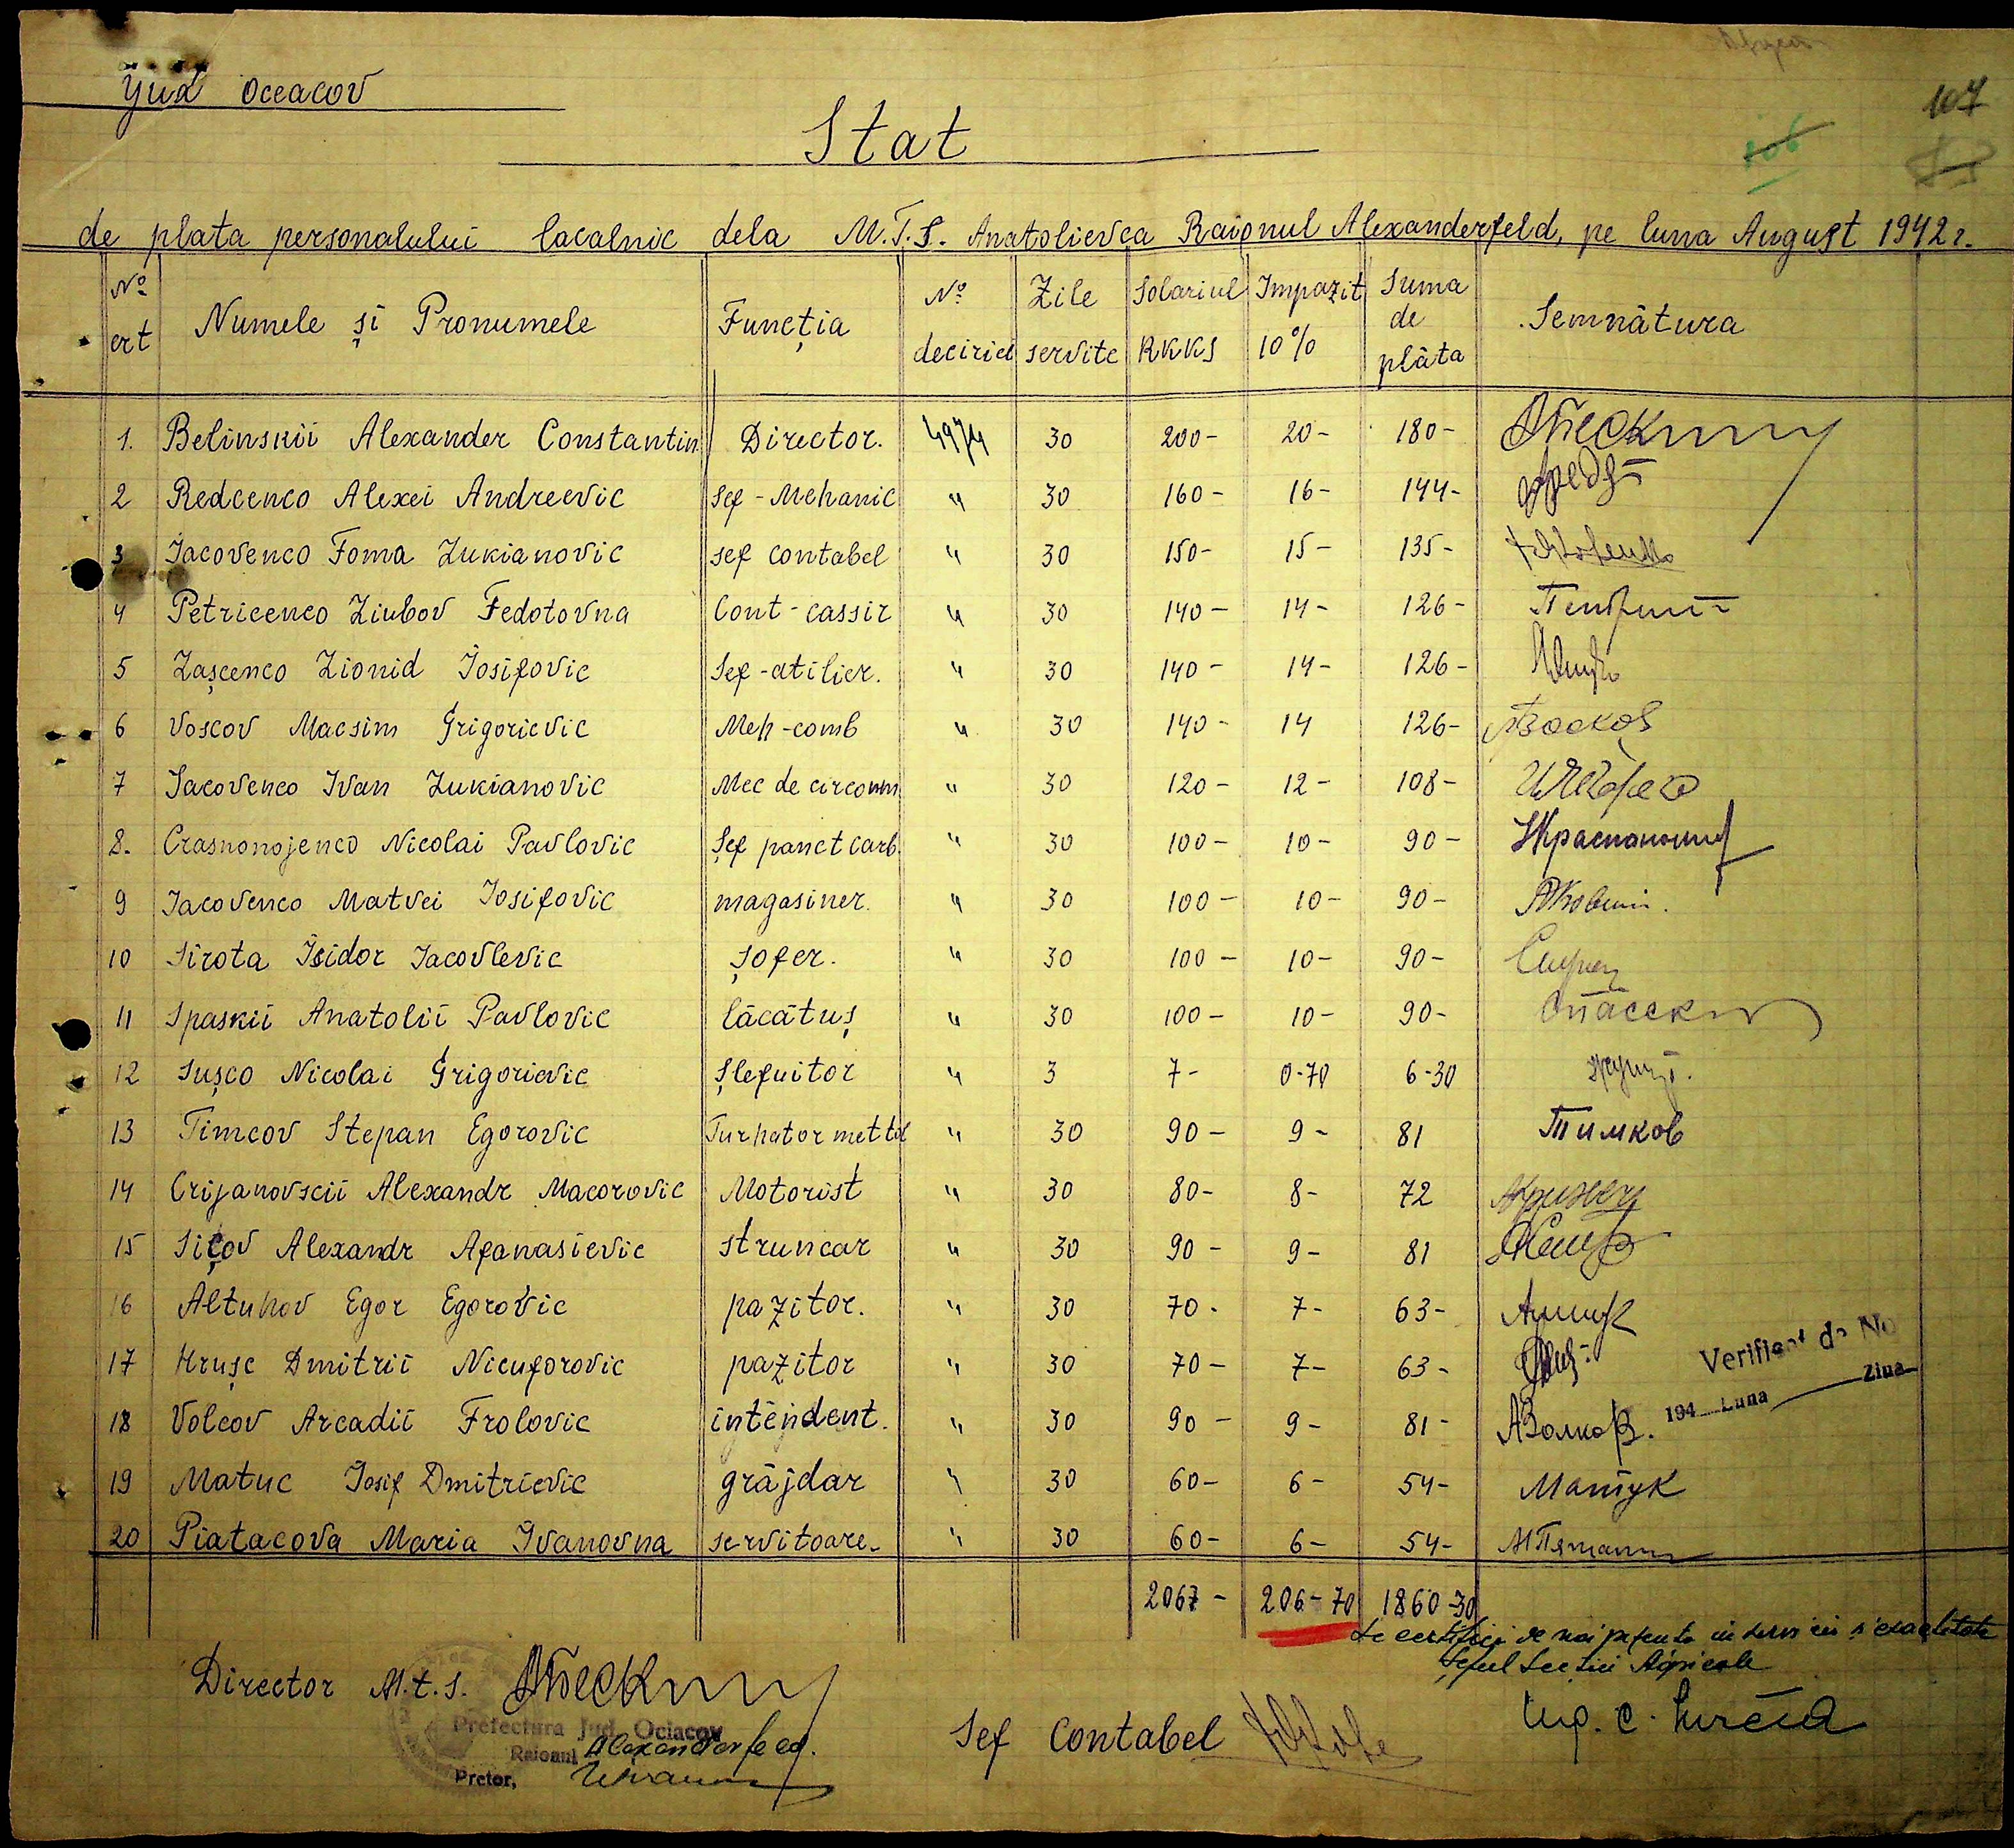 Jud Oceacov
107
106
Stat
de plata personalului localnic dela M.T.S. Anatolievca Raionul Alexanderfeld, pe luna August 1942 г.
№ crt Numele și Pronumele Funcția № deciziei Zile servite Solariul RKKS Impozit 10% Suma de plăta Semnătura
1. Belinskii Alexander Constantin Director. 4974 30 200- 20- 180-
2 Redcenco Alexei Andreevic Sef-Mehanic " 30 160- 16- 144-
3 Iacovenco Foma Lukianovic sef contabel " 30 150- 15- 135-
4 Petricenco Liubov Fedotovna Cont-cassir " 30 140- 14- 126-
5 Lașcenco Lionid Iosifovic Sef-atilier. " 30 140- 14- 126-
6 Voscov Macsim Grigorievic Meh-comb " 30 140- 14 126- Восков
7 Iacovenco Ivan Lukianovic Mec de circonm " 30 120- 12- 108-
8. Crasnonojenco Nicolai Pavlovic Șef punct carb. " 30 100- 10- 90-
9 Iacovenco Matvei Iosifovic magasiner. " 30 100- 10- 90-
10 Sirota Isidor Iacovlevic Șofer. " 30 100- 10- 90-
11 Spaskii Anatolii Pavlovic lăcătuș " 30 100- 10- 90- Спасски
12 Sușco Nicolai Grigorievic Șlefuitor " 3 7- 0-70 6-30
13 Timcov Stepan Egorovic Turnator mettal " 30 90- 9- 81 Тимков
14 Crijanovscii Alexandr Macorovic Motorist " 30 80- 8- 72
15 Sițov Alexandr Afanasievic struncar " 30 90- 9- 81
16 Altuhov Egor Egorovic pazitor. " 30 70- 7- 63-
17 Hrușc Dmitrii Nicuforovic pazitor " 30 70- 7- 63-
18 Volcov Arcadii Frolovic intendent. " 30 90- 9- 81- АВолков.
19 Matuc Iosif Dmitrievic grăjdar " 30 60- 6- 54- Матук
20 Piatacova Maria Ivanovna servitoare- " 30 60- 6- 54-
Verificat de No
194 Luna Ziua
2067- 206-70 1860-30
Se certifică de noi
Șeful Secției Agricole
Director M.t.S.
Prefectura Jud. Ociacov
Raionul Alexanderfeld.
Pretor,
Sef Contabel
Ing. C.